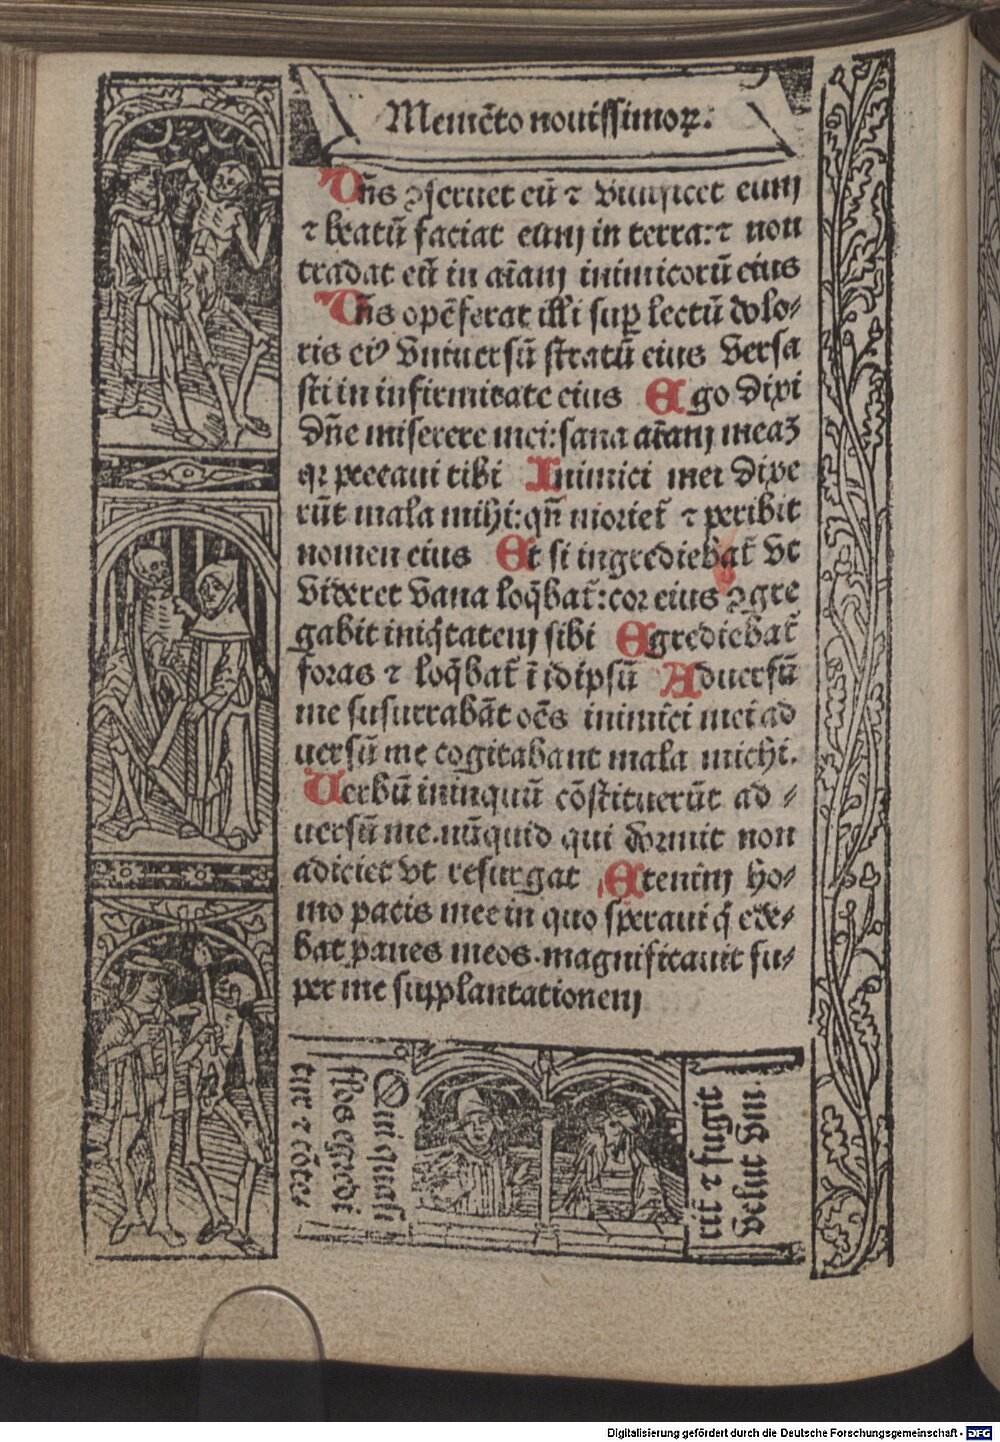 Memēto nouissimoꝝ.
Dn̄s ↄseruet eū ⁊ viuificet eum
⁊ beatū faciat eum in terra: ⁊ non
tradat eū in aīam inimicorū eius
Dn̄s opē ferat illi suꝑ lectū dolo-
ris eiꝰ vniuersū stratū eius versa
sti in infirmitate eius Ego dixi
dn̄e miserere mei: sana aīam meaꝫ
qꝛ peccaui tibi Inimici mei dixe
rūt mala mihi: qn̄ moriet̄ ⁊ peribit
nomen eius Et si ingrediebat̄ vt
videret vana loq̄bat̄: cor eius ↄgre
gabit iniq̄tatem sibi Egrediebat̄
foras ⁊ loq̄bat̄ ī idipsū Aduersū
me susurrabāt oēs inimici mei ad
uersū me cogitabant mala michi.
Verbū ininquū cōstituerūt ad -
uersū me. nūquid qui dormit non
adiciet vt resurgat Etenim ho-
mo pacis mee in quo speraui q̄ ede-
bat panes meos. magnificauit su-
per me supplantationem
Qui quasi
flos egredi
tur ⁊ cōte
rit̄ ⁊ fugit
velut vm
Digitalisierung gefördert durch die Deutsche Forschungsgemeinschaft - DFG